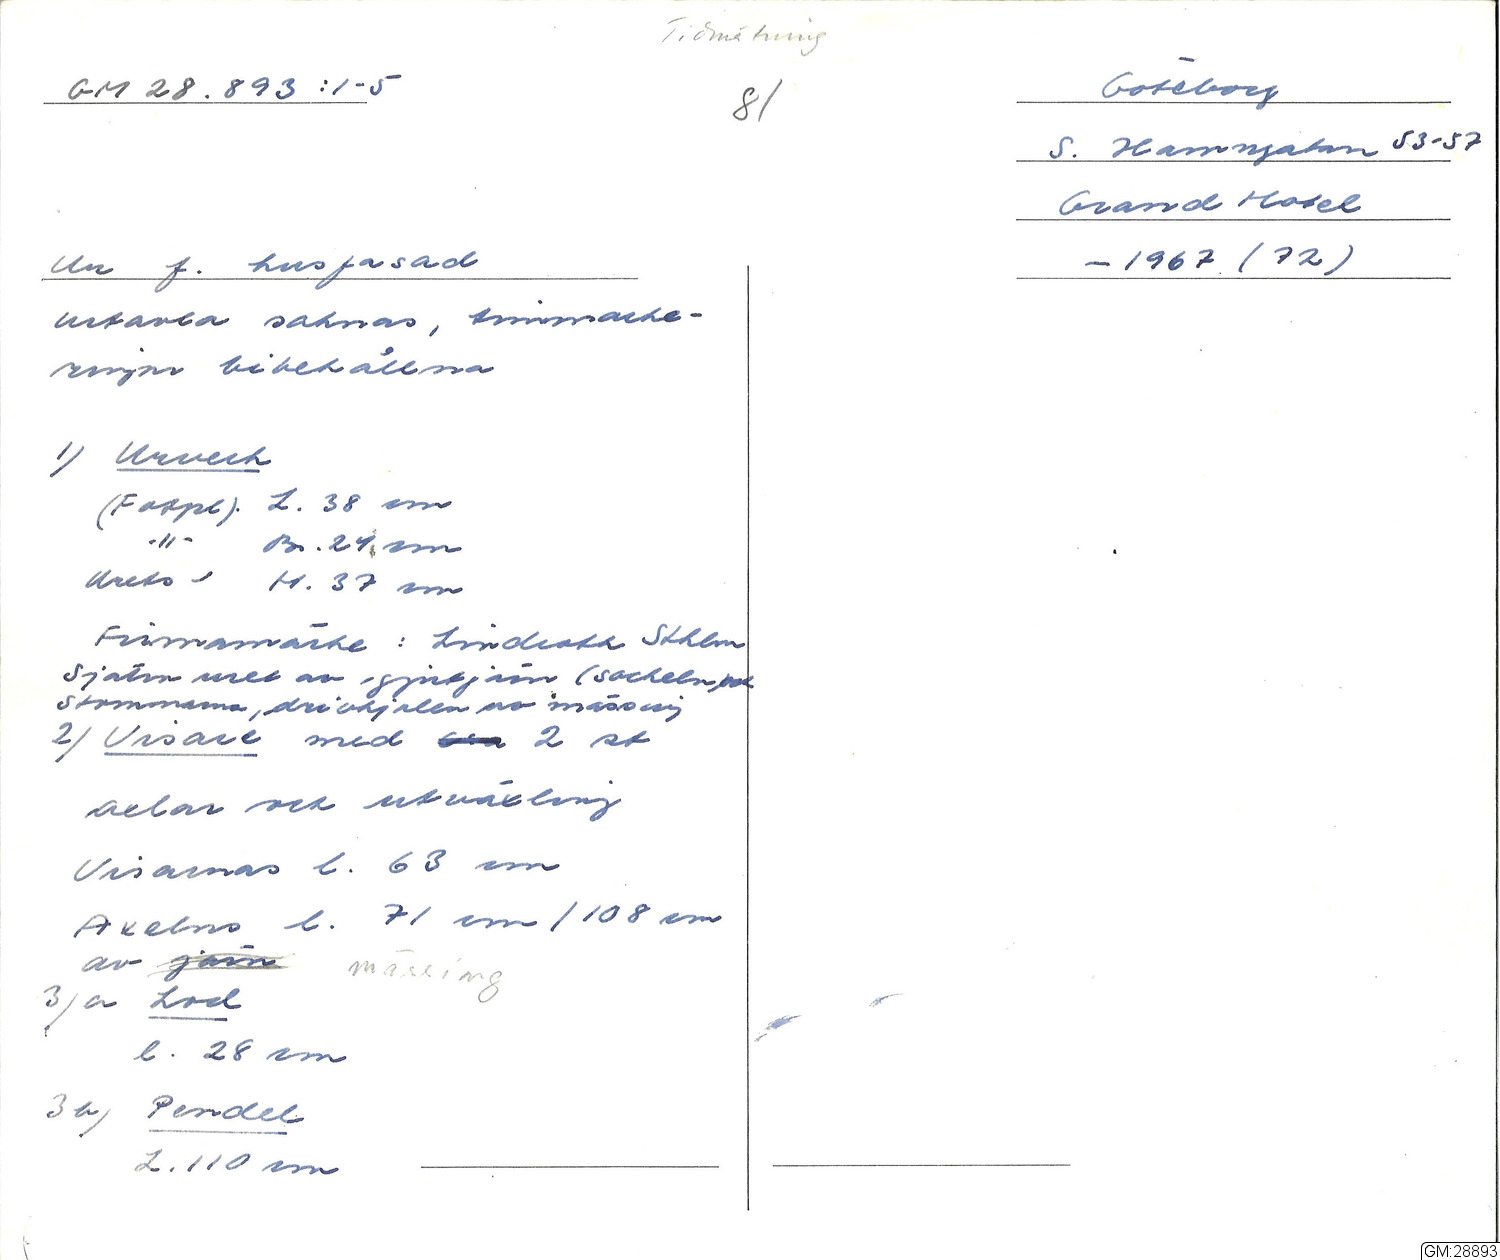 Tidmätning
GM 28.893:1-5
8/
Göteborg
S. Hamngatan 53-57
Grand Hotel
- 1967 (72)
Ur f. husfasad
Urtavla saknas, timmarke-
ringar bibehållna
1) Urverk
(Fotpl). L. 38 cm
-"- Br. 24 cm
Urets -" H. 37 cm
Firmamärke: Linderoth Sthlm
Själva uret av gjutjärn (sockeln och
stommarna, drivhjulen av mässing
2) Visare med 2 st
axlar och utväxling
Visarnas l. 63 cm
Axelns l. 71 cm / 108 cm
av järn mässing
3) a Lod
l. 28 cm
3 b) Pendel
L. 110 cm
GM:28893